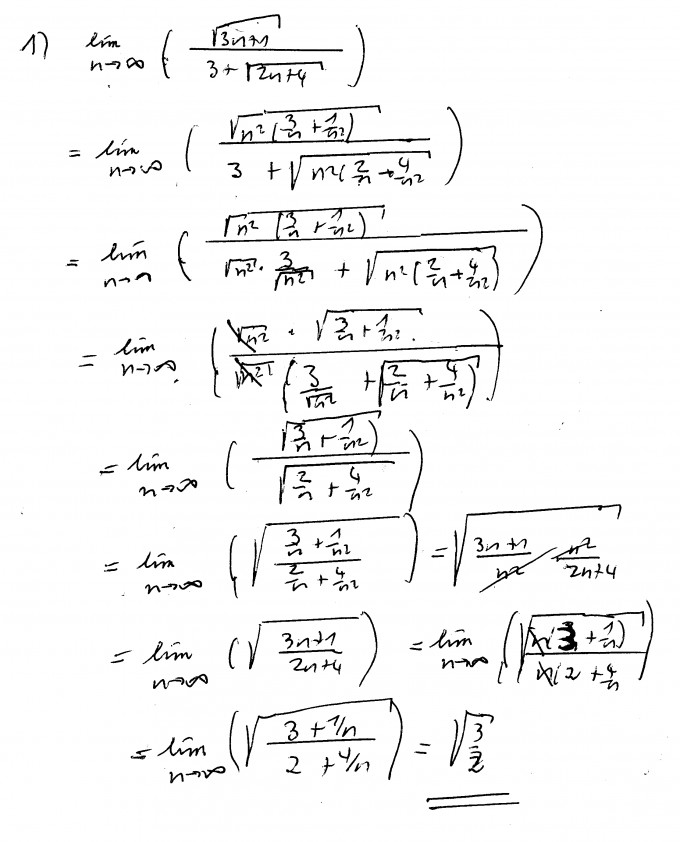 1) lim n→∞ ( √(3n+1) / (3 + √(2n+4)) )
= lim n→∞ ( √(n²(3/n + 1/n²)) / (3 + √(n²(2/n + 4/n²))) )
= lim n→∞ ( √(n² (3/n + 1/n²)) / (√n² · 3/√n² + √(n²(2/n + 4/n²))) )
= lim n→∞ ( √n² · √(3/n + 1/n²) / (√n² (3/√n² + √(2/n + 4/n²))) )
= lim n→∞ ( √(3/n + 1/n²) / √(2/n + 4/n²) )
= lim n→∞ ( √((3/n + 1/n²) / (2/n + 4/n²)) ) = √((3n+1)/n² · n²/(2n+4))
= lim n→∞ ( √((3n+1)/(2n+4)) ) = lim n→∞ ( √(n(3 + 1/n) / n(2 + 4/n)) )
= lim n→∞ ( √((3 + 1/n) / (2 + 4/n)) ) = √(3/2)